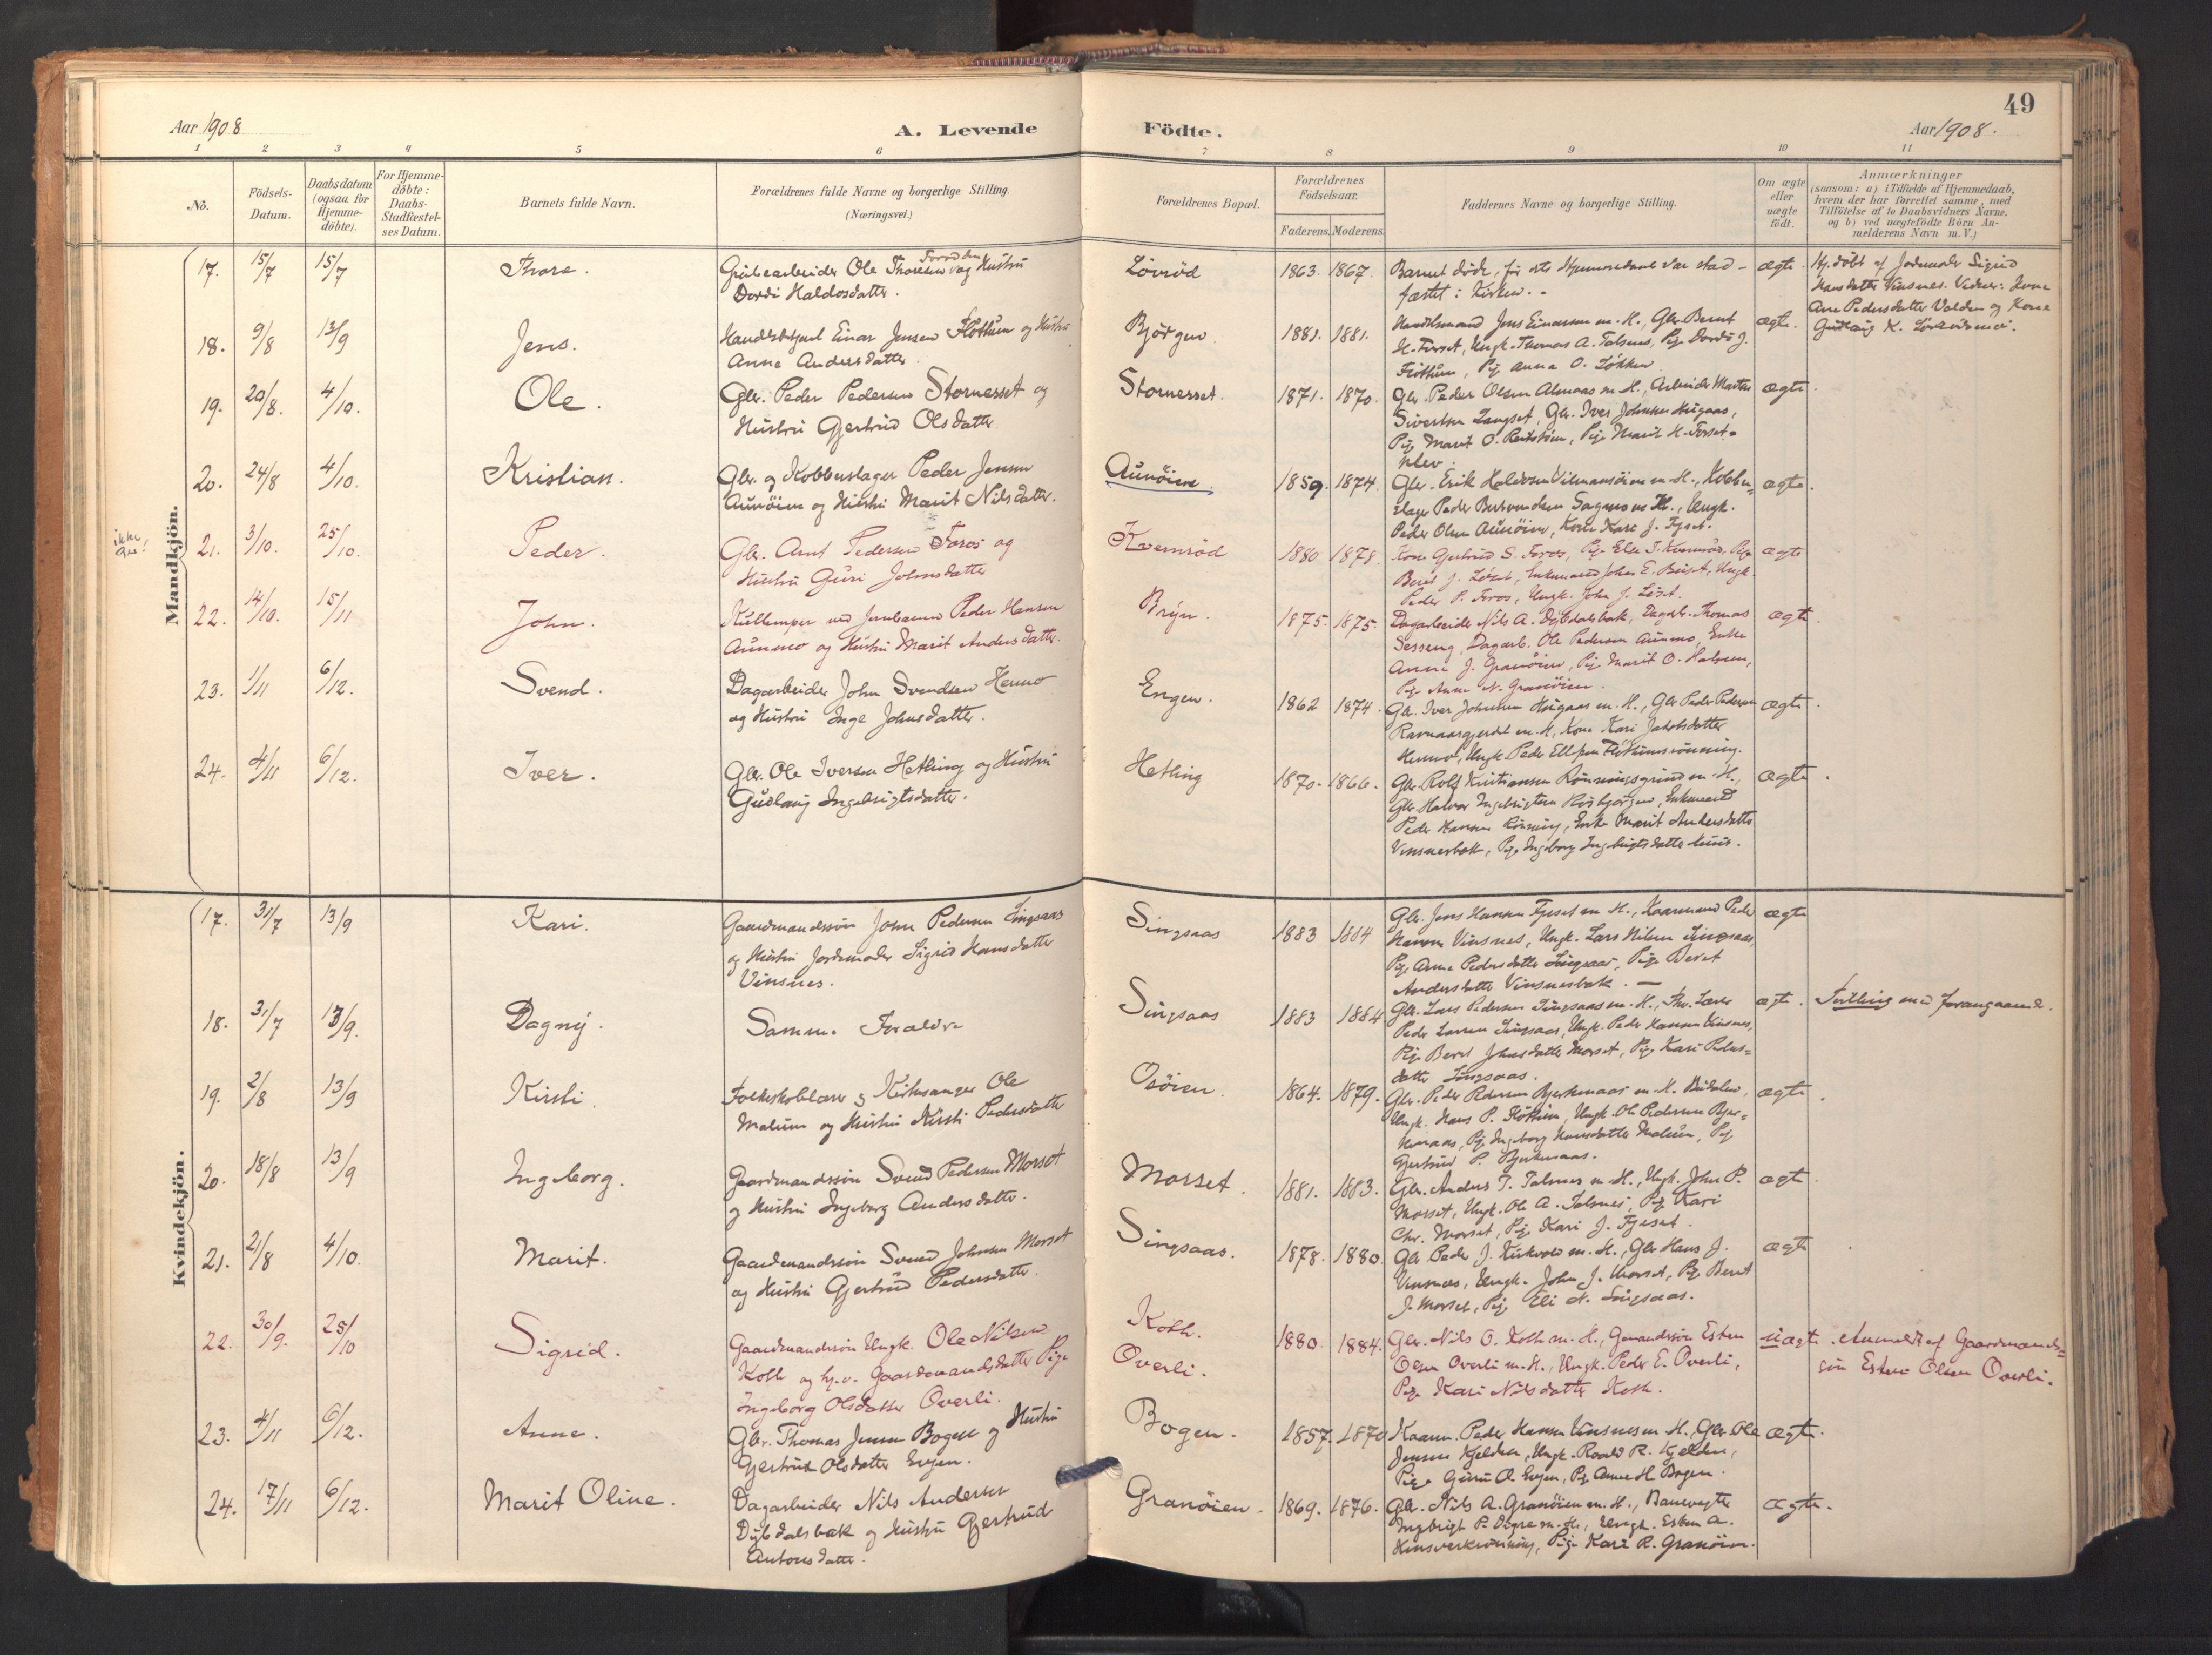 49
Aar 1908
A. Levende
Födte.
Aar 1908.
1 2 3 4 5 6 7 8 9 10 11
No.
Födsels-
Datum.
Daabsdatum
(ogsaa for
Hjemme-
döbte).
For Hjemme-
döbte:
Daabs-
Stadfæstel-
ses Datum.
Barnets fulde Navn.
Forældrenes fulde Navne og borgerlige Stilling.
(Næringsvei.)
Forældrenes Bopæl.
Forældrenes
Födselsaar.
Faderens. Moderens.
Faddernes Navne og borgerlige Stilling.
Om ægte
eller
uægte
födt.
Anmærkninger
(saasom: a) i Tilfælde af Hjemmedaab,
hvem der har forrettet samme, med
Tilföielse af to Daabsvidners Navne,
og b) ved uægtefödte Börn An-
melderens Navn m. V.)
Mandkjön.
17. 15/7 15/7 Thore.
Grubearbeider Ole Thoresen og Hustru
Dordi Haldosdatter.
Lövröd 1863. 1867.
Barnet döde, för dets Hjemmedaab var stad-
fæstet i Kirken.
ægte.
Hj. döbt af Jordmoder Sigrid
Hansdatter Vinsnes. Vidner: Kone
Ane Pedersdatter Volden og Kone
18. 9/8 13/9 Jens.
Handelsbetjent Einar Jensen Flöttum og Hustru
Anne Andersdatter.
Bjørgen 1881. 1881.
Handelsmand Jens Einarsen m. H., Gbr. Bernt
H. Forset, Ungk. Thomas A. Talsnes, Pige Dordi J.
Flöttum, Pig Anna O. Løkken
ægte.
19. 20/8. 4/10. Ole.
Gbr. Peder Pedersen Stornesset og
Hustru Gjertrud Olsdatter
Stornesset. 1871. 1870.
Gbr. Peder Olsen Almaas m. H., Arbeider Morten
Sivertsen Langset, Gbr. Iver Johnsen Haugaas,
Pig Marit O. Pige Marit H. Forset-
ægte.
20. 24/8 4/10. Kristian.
Gbr. og Kobberslager Peder Jensen
Aunöien og Hustru Marit Nilsdatter.
Aunöien 1859. 1874.
Gbr. Erik Haldosen m. H., Kobber-
slager Peder m. H., Ungk.
Peder Olsen Aunöien, Kone Kari J. Fjeset.
ægte.
21. 3/10. 25/10. Peder.
Gbr. Arnt Pedersen Foros og
Hustru Guri Johnsdatter
Kvernröd 1880 1878.
Kone Gjertrud S. Foros, Pige Else J. Kvernröd, Pige
Beret J. Enkemand John E. Ungk.
Peder P. Foros, Ungk. John J.
ægte
22. 14/10. 15/11 John.
Kullemper ved Jernbanen Peder Hansen
Aunmo og Hustru Marit Andersdatter.
Bryn. 1875. 1875.
Dagarbeider Nils A. Dybdalsbak, Dagarb. Thomas
Sesseng, Dagarb. Ole Pedersen Aunmo, Enke
Anne J. Granöien, Pige Marit O.
Pige Anne N. Granöien.
ægte.
23. 1/11 6/12. Svend.
Dagarbeider John Svendsen Hermo
og Hustru Inge Johnsdatter.
Engen. 1862 1874.
Gbr. Iver Johnsen Haugaas m. H., Gbr. Peder Pedersen
m. H., Kone Kari Jakobsdatter
Hermo, Ungk. Peder Ellefsen Flöttumsrönning.
ægte.
24. 4/11 6/12. Iver.
Gbr. Ole Iversen Hetling og Hustru
Gudlaug Ingebrigtsdatter.
Hetling 1870. 1866.
Gbr. Rolf Kristiansen m. H.,
Gbr. Halvor Ingebrigtsen Enkemand
Peder Hansen Rönning, Enke Marit Andersdatter
Vinsnesbak, Pige Ingeborg Ingebrigtsdatter
ægte.
Kvindekjön.
17. 31/7 13/9 Kari.
Gaardmandssön John Pedersen Singsaas
og Hustru Jordmoder Sigrid Hansdatter
Vinsnes.
Singsaas 1883 1884
Gbr. Jens Hansen Fjeset m. H., Kaarmand Peder
Hansen Vinsnes, Ungk. Lars Nilsen Singsaas,
Pige Anne Pedersdatter Singsaas, Pige Beret
Andersdatter Vinsnesbak.
ægte
18. 31/7 13/9. Dagny.
Samme Foraldre
Singsaas 1883 1884
Gbr. Lars Pedersen Singsaas m. H., Lærer
Peder Larsen Singsaas, Ungk. Peder Hansen Vinsnes,
Pige Beret Johnsdatter Morset, Pige Kari Peders-
datter Singsaas.
ægte.
Tvilling med foregaaende.
19. 2/8 13/9 Kirsti.
Folkeskolelærer og Kirkesanger Ole
Malum og Hustru Kirsti Pedersdatter
Osöien. 1864. 1879.
Gbr. Peder Pedersen Bjerkenaas m. H. Budalen,
Ungk. Hans P. Flöttum, Ungk. Ole Pedersen Bjer-
kenaas, Pige Ingeborg Hansdatter Malum, Pige
Gjertrud P. Bjerkenaas.
ægte.
20. 18/8 13/9 Ingeborg.
Gaardmandssön Svend Pedersen Morset
og Hustru Ingeborg Andersdatter.
Morset. 1881. 1883.
Gbr. Anders T. Talsnes m. H., Ungk. John P.
Morset, Ungk. Ole A. Talsnes, Pige Kari
Chr. Morset, Pige Kari J. Fjeset.
ægte
21. 21/8 4/10. Marit.
Gaardmandssön Svend Johnsen Morset
og Hustru Gjertrud Pedersdatter.
Singsaas. 1878. 1880.
Gbr. Peder J. Kirkvold m. H., Gbr. Hans J.
Vinsnes, Ungk. John J. Morset, Pige Beret
J. Morset, Pige Eli N. Singsaas.
ægte
22. 30/9. 25/10 Sigrid.
Gaardmandssön Ungk. Ole Nilsen
Koth og hj. v. Gaardmandsdatter Pige
Ingeborg Olsdatter Overli.
Koth.
Overli. 1880. 1884.
Gbr. Nils O. Koth m. H., Gmandssön Esten
Olsen Overli m. H., Ungk. Peder E. Overli,
Pige Kari Nilsdatter Koth.
uægte.
Anmeldt af Gaardmands-
sön Esten Olsen Overli.
23. 4/11 6/12. Anne.
Gbr. Thomas Jensen Bogen og Hustru
Gjertrud Olsdatter Engen.
Bogen. 1857. 1870
Kaarm. Peder Hansen Vinsnes m. H., Gbr. Ole
Jensen Kjelden, Ungk. Roald R. Kjelden,
Pige Guru O. Engen, Pige Anne H. Bogen.
ægte.
24. 17/11 6/12. Marit Oline.
Dagarbeider Nils Andersen
Dybdalsbak og Hustru Gjertrud
Antonsdatter.
Granöien. 1869. 1876.
Gbr. Nils A. Granöien m. H., Banevogter
Ingebrigt P. Digre m. H., Ungk. Esten A.
Pige Kari R. Granöien.
ægte.